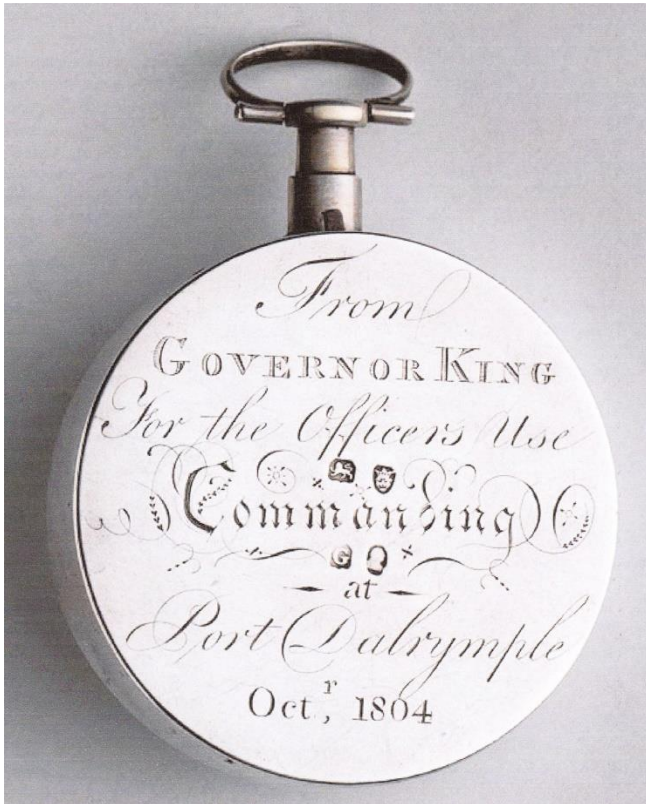 From
GOVERNOR KING
For the Officers Use
Commanding
G
at
Port Dalrymple
Octr, 1804